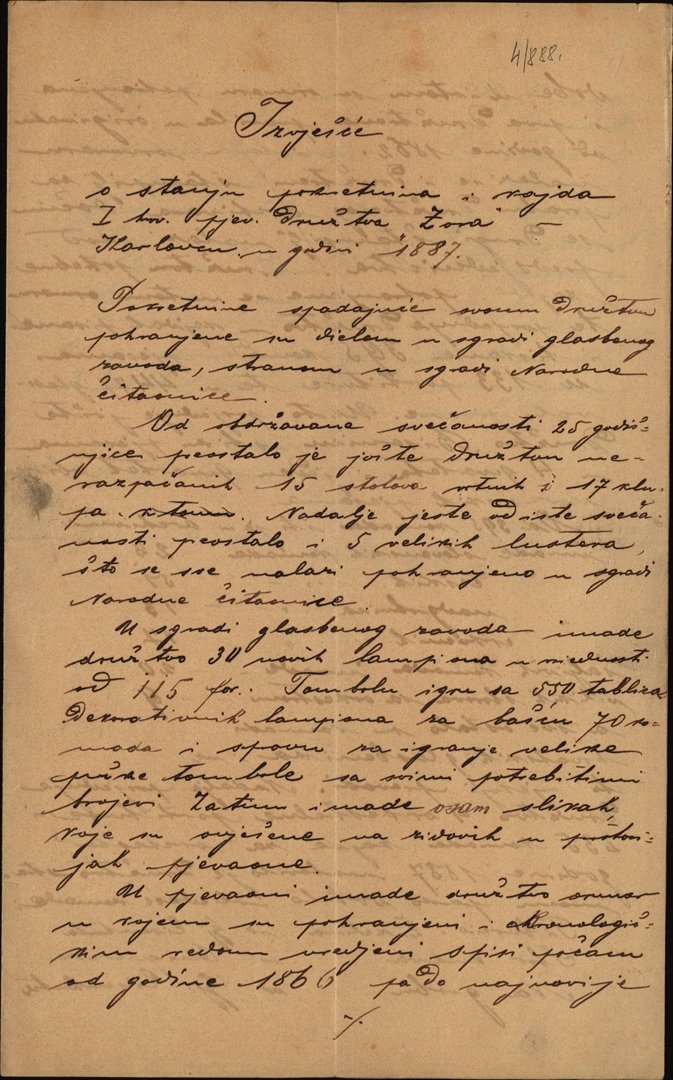 4/888.
Izvješće
o stanju pokretnina i kajda
I hrv. pjev. družtva "Zora" u
Karlovcu u godini 1887.
Pokretnine spadajuće svomu družtvu
pohranjene su dielom u sgradi glasbenog
zavoda, stranom u sgradi Narodne
čitaonice.
Od obdržavane svečanosti 25 godiš-
njice preostalo je jošte družtvu ne-
razpačanih 15 stolova vrtnih i 17 klu-
pa k tomu. Nadalje jeste od iste sveča-
nosti preostalo i 5 velikih lustera,
što se sve nalazi pohranjeno u sgradi
Narodne čitaonice.
U sgradi glasbenog zavoda imade
družtvo 30 novih lampiona u vriednosti
od 115 for. Tombolu igru sa 550 tablica
Dekorativnih lampiona za bašću 70 ko-
mada i spravu za igranje velike
pučke tombole sa svimi potrebitimi
brojevi Zatim imade osam slikah,
koje su ovješene na zidovih u prostori-
jah pjevaone.
U pjevaoni imade družtvo ormar
u kojem su pohranjeni i kronologič-
kim redom uredjeni spisi počam
od godine 1866 pa do najnovije
./.